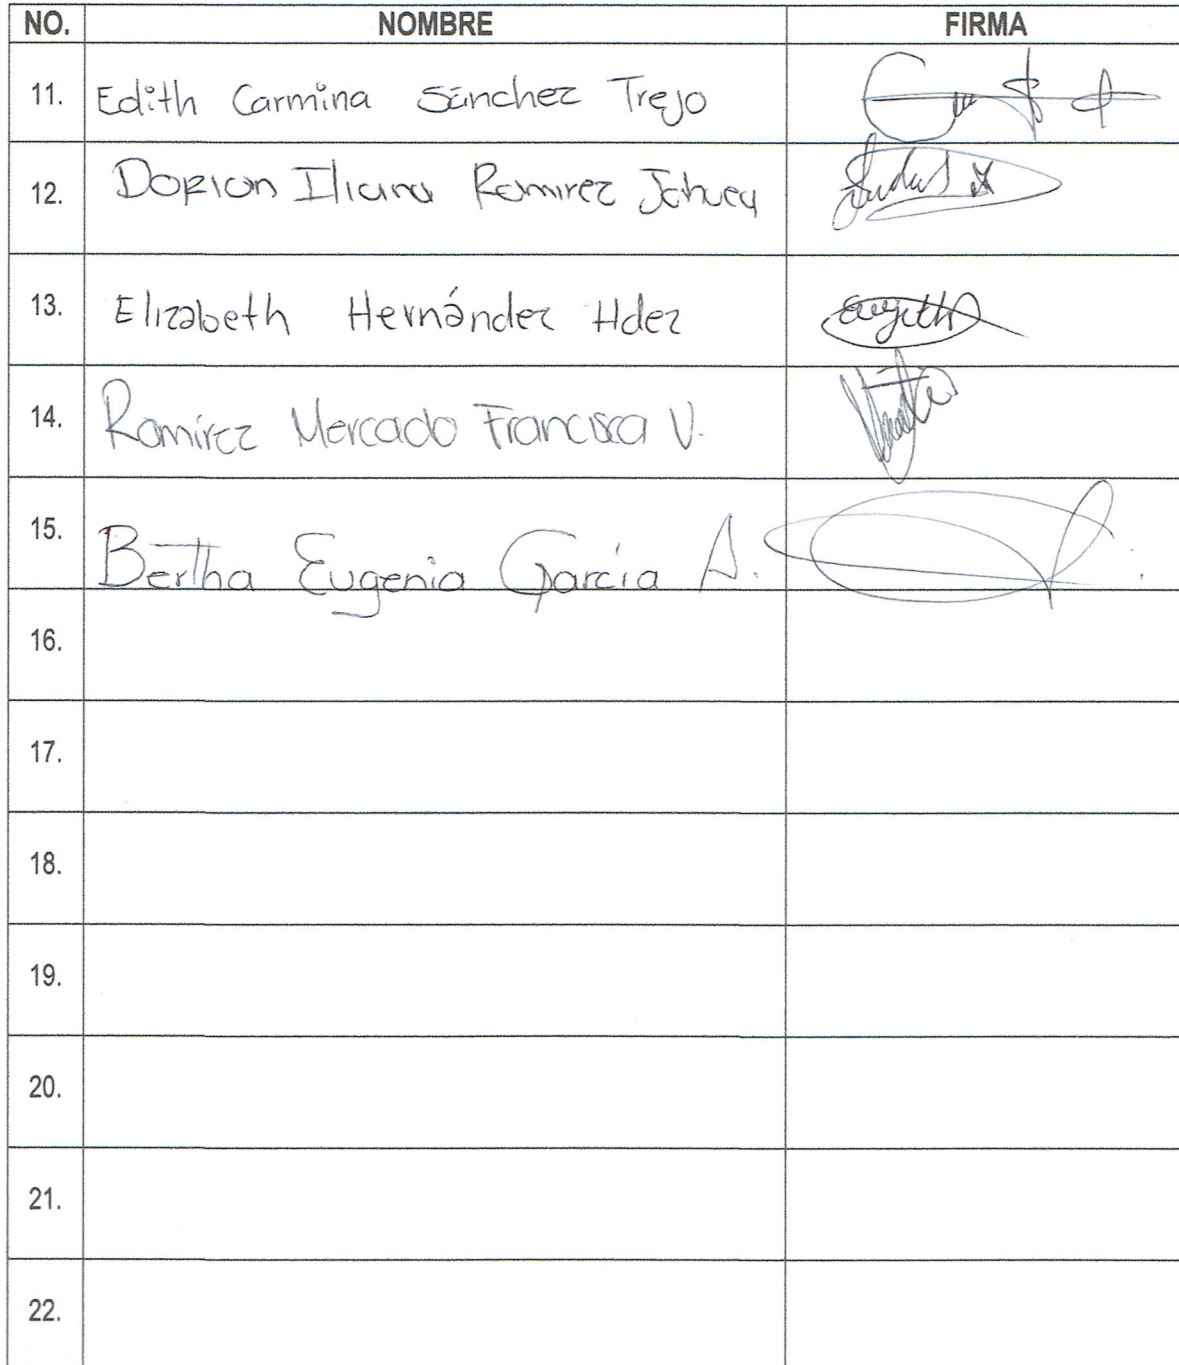 NO. NOMBRE FIRMA
11. Edith Carmina Sánchez Trejo
12. Dorian Iliana Ramirez
13. Elizabeth Hernández Hdez
14. Ramírez Mercado Francisca V.
15. Bertha Eugenia García A.
16.
17.
18.
19.
20.
21.
22.